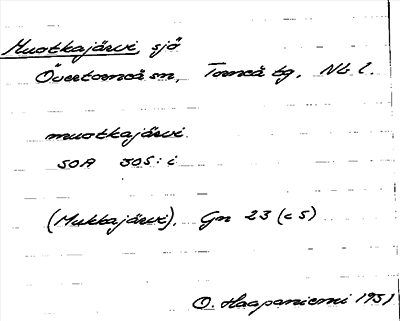 Muotkajärvi, sjö
Övertorneå sn, Torneå tg, Nb l.
muotkajärvi
SOA 305: i
(Mukkajärvi). Gn 23 (c 5)
O. Haapaniemi 1931